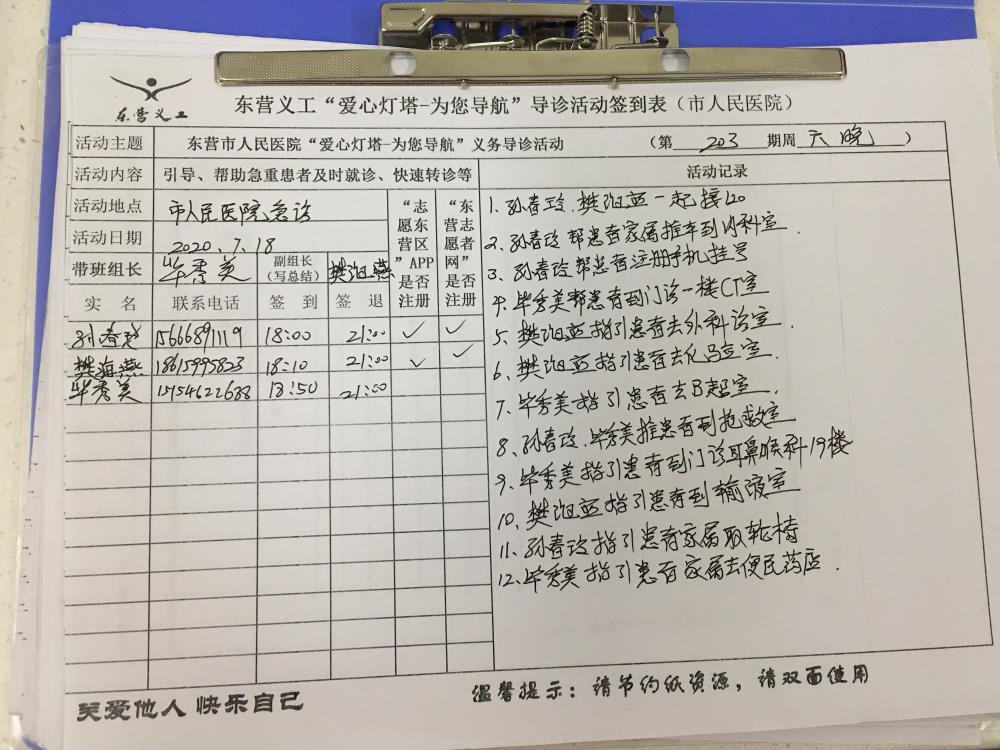 东营义工
东营义工“爱心灯塔-为您导航”导诊活动签到表（市人民医院）
活动主题 东营市人民医院“爱心灯塔-为您导航”义务导诊活动 （第 203 期周 六晚 ）
活动内容 引导、帮助急重患者及时就诊、快速转诊等 活动记录
活动地点 市人民医院急诊
活动日期 2020.7.18
带班组长 毕秀美 副组长（写总结） 樊海燕
“志愿东营区”APP是否注册
“东营志愿者网”是否注册
实名 联系电话 签到 签退
孙春玲 15666891119 18:00 21:00 ✓ ✓
樊海燕 18615995823 18:10 21:00 ✓ ✓
毕秀美 15754622688 18:50 21:00
1. 孙春玲.樊海燕一起接120
2、孙春玲帮患者家属推车到内科室.
3、孙春玲帮患者注册手机挂号
4、毕秀美帮患者到门诊一楼CT室
5、樊海燕指引患者去外科诊室.
6、樊海燕指引患者去化验室.
7、毕秀美指引患者去B超室.
8、孙春玲.毕秀美推患者到抢救室
9、毕秀美指引患者到门诊耳鼻喉科19楼
10、樊海燕指引患者到输液室
11、孙春玲指引患者家属取轮椅
12、毕秀美指引患者家属去便民药店.
关爱他人 快乐自己
温馨提示：请节约纸资源，请双面使用